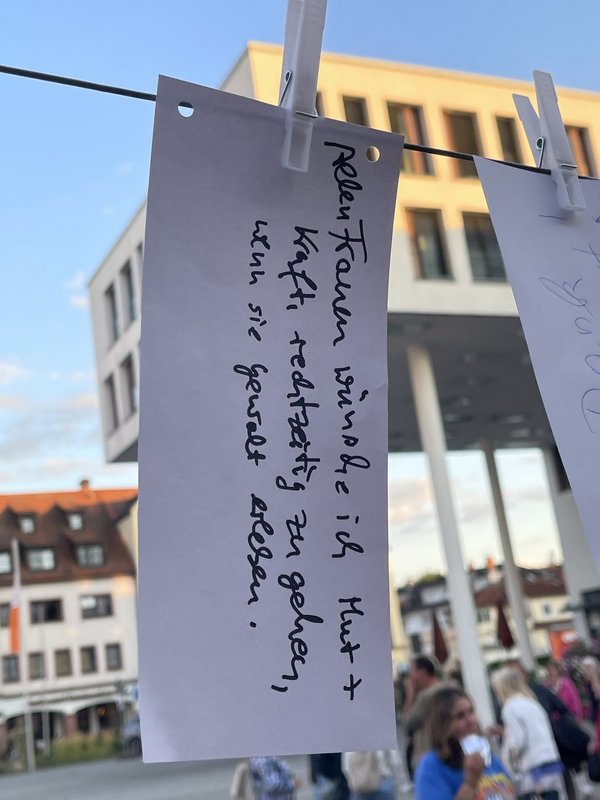 Allen Frauen wünsche ich Mut +
Kraft, rechtzeitig zu gehen,
wenn sie gewalt erleben.